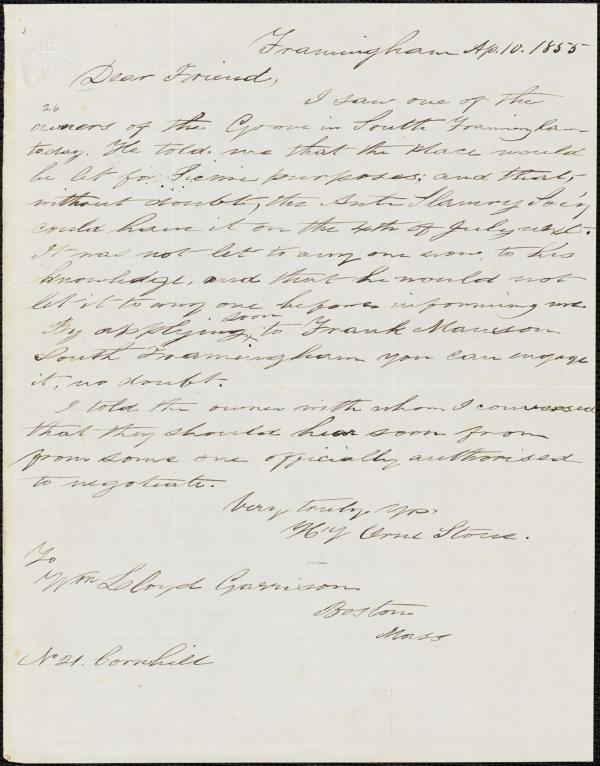 Framingham Ap. 10. 1855
Dear Friend,
I saw one of the
26
owners of the Groove in South Framingham
today. He told me that the place would
be let for Picnic purposes; and that,
without doubt, the Anti Slavery Soc'y
could have it on the 4th of July next.
It was not let to any one now, to his
knowledge, and that he would not
let it to any one before informing me
By applying soon to Frank Manson
South Framingham you can engage
it, no doubt.
I told the owner with whom I conversed
that they should hear soon from
from some one officially authorised
to negotiate.
Very truly Yrs
H'y Orne Stone.
To
Wm Lloyd Garrison
Boston
Mass
No 21. Cornhill